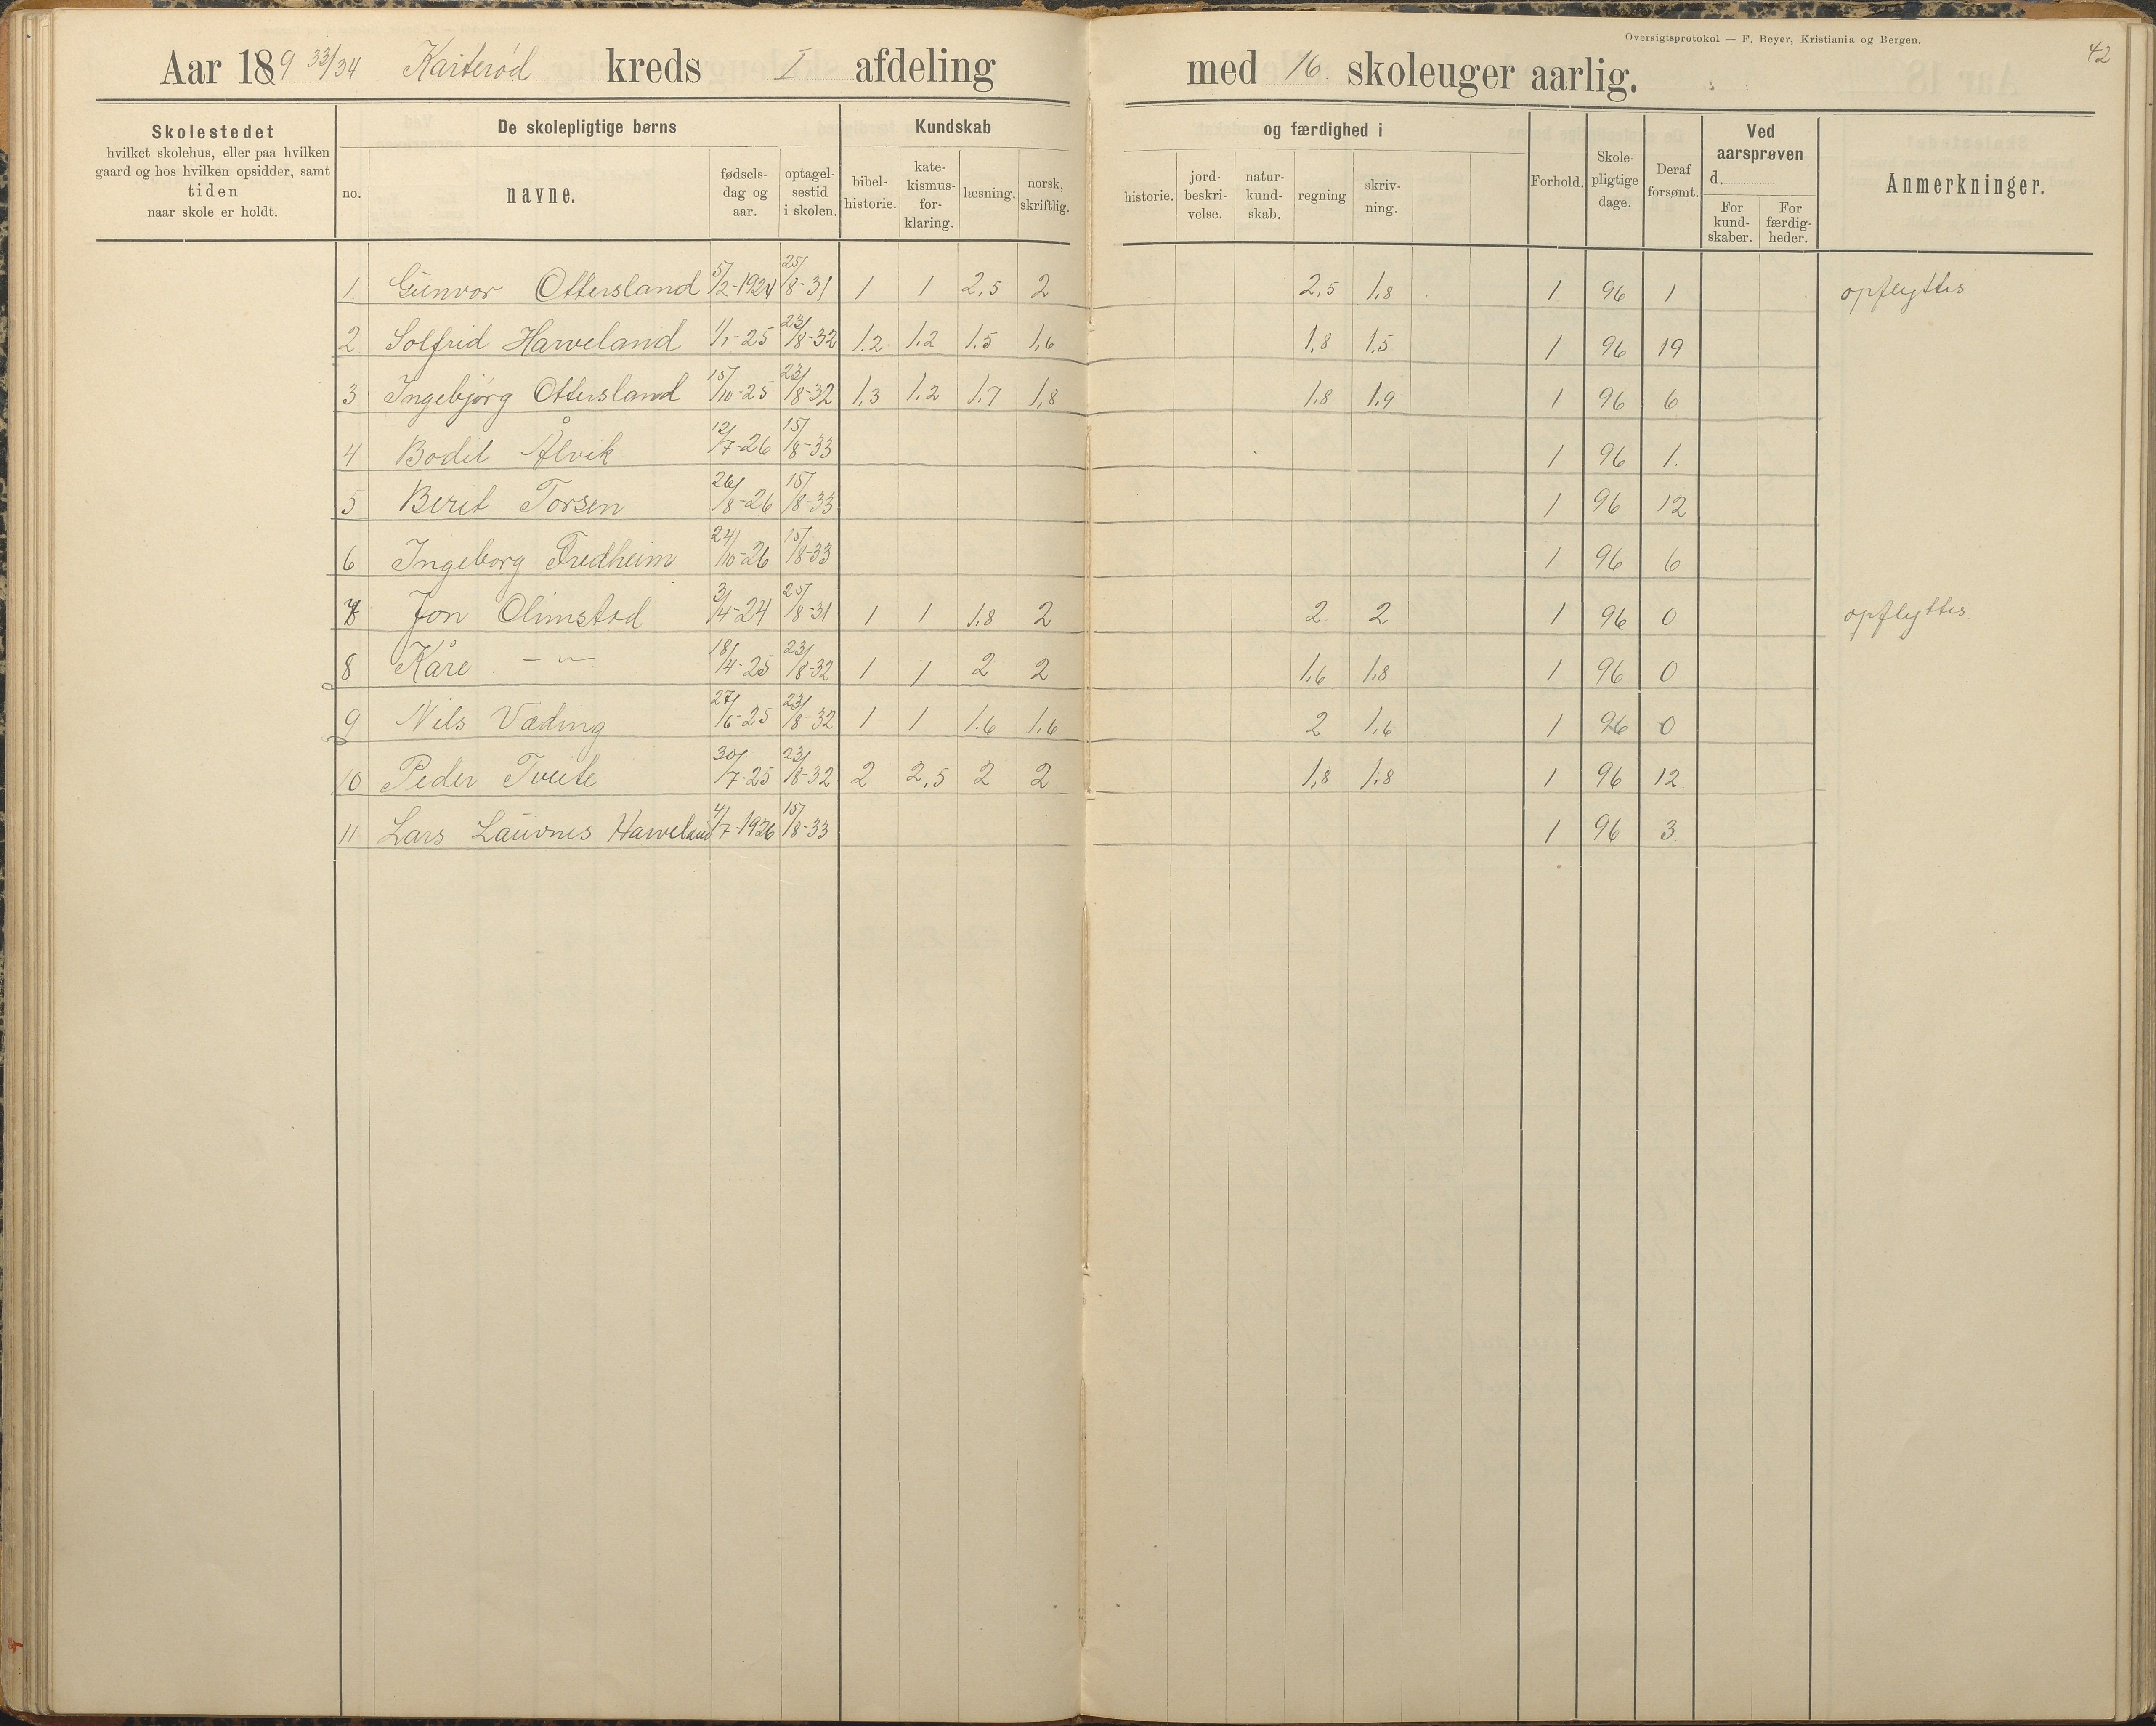 Oversigtsprotokol — F. Beyer, Kristiania og Bergen.
42
Aar 189 33/34 Karterød kreds I afdeling med 16. skoleuger aarlig.
Skolestedet hvilket skolehus, eller paa hvilken gaard og hos hvilken opsidder, samt tiden naar skole er holdt.
De skolepligtige børns
no. navne. fødsels-dag og aar. optagel-sestid i skolen.
Kundskab og færdighed i
bibel-historie. kate-kismus-for-klaring. læsning. norsk, skriftlig. historie. jord-beskri-velse. natur-kund-skab. regning skriv-ning.
Forhold. Skole-pligtige dage. Deraf forsømt.
Ved aarsprøven d.
For kund-skaber. For færdig-heder.
Anmerkninger.
1. Gunvor Ottersland 5/2-1924 25/8-31 1 1 2,5 2 2,5 1,8 1 96 1 opflyttes
2 Solfrid Harveland 1/1-25 23/8-32 1.2 1.2 1.5 1,6 1,8 1,5 1 96 19
3 Ingebjørg Ottersland 15/10-25 23/8-32 1,3 1,2 1,7 1,8 1,8 1,9 1 96 6
4 Bodil Ålvik 12/7-26 15/8-33 1 96 1.
5 Berit Torsen 26/8-26 15/8-33 1 96 12
6 Ingeborg Fredheim 24/10-26 15/8-33 1 96 6
7 Jon Olimstad 3/4-24 25/8-31 1 1 1,8 2 2 2 1 96 0 opflyttes
8 Kåre -"- 18/4-25 23/8-32 1 1 2 2 1,6 1,8 1 96 0
9 Nils Væding 27/6-25 23/8-32 1 1 1.6 1,6 2 1,6 1 96 0
10 Peder Tveite 30/7-25 23/8-32 2 2,5 2 2 1,8 1,8 1 96 12
11 Lars Lauvnes Harveland 4/7-1926 15/8-33 1 96 3